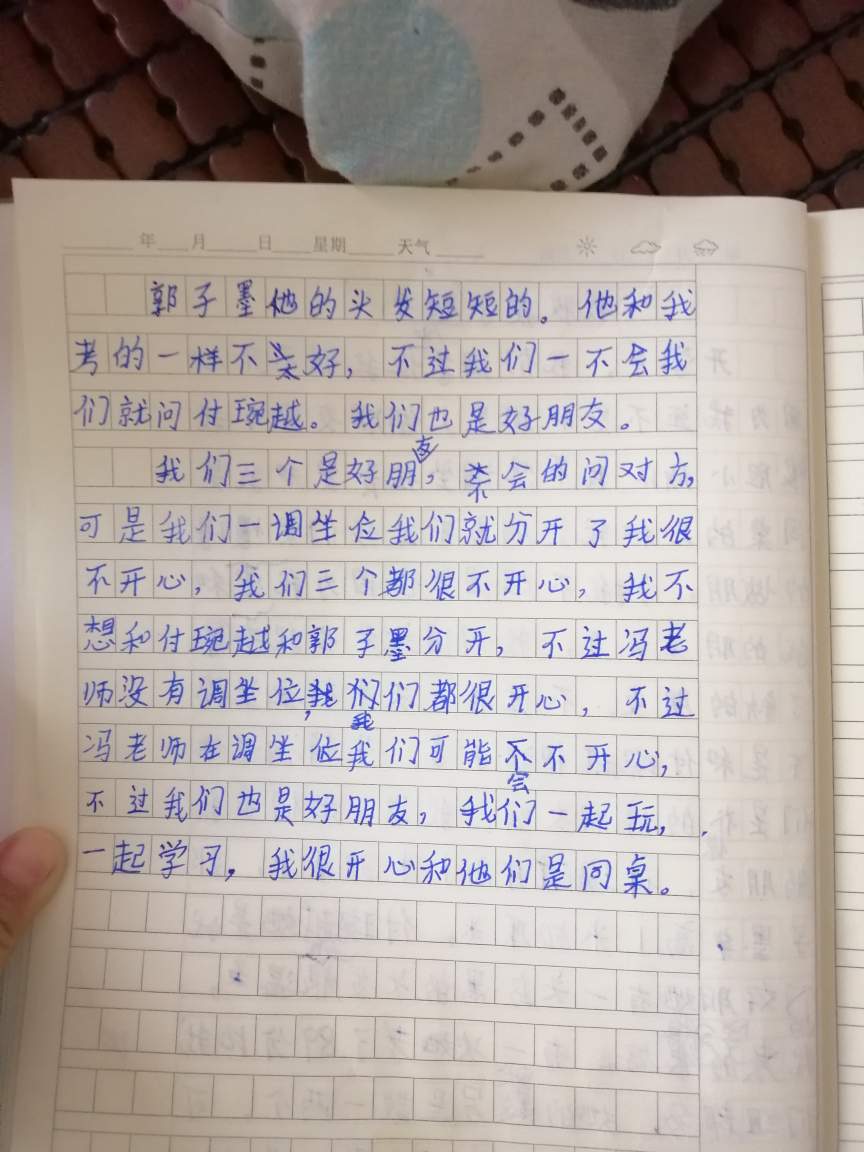 年 月 日 星期 天气
郭子墨他的头发短短的。他和我
考的一样不太好，不过我们一不会我
们就问付琬越。我们也是好朋友。
我们三个是好朋友，不会的问对方，
可是我们一调坐位我们就分开了我很
不开心，我们三个都很不开心，我不
想和付琬越和郭子墨分开，不过冯老
师没有调坐位，我们都很开心，不过
冯老师在调坐位我们可能会不开心，
不过我们也是好朋友，我们一起玩，
一起学习，我很开心和他们是同桌。